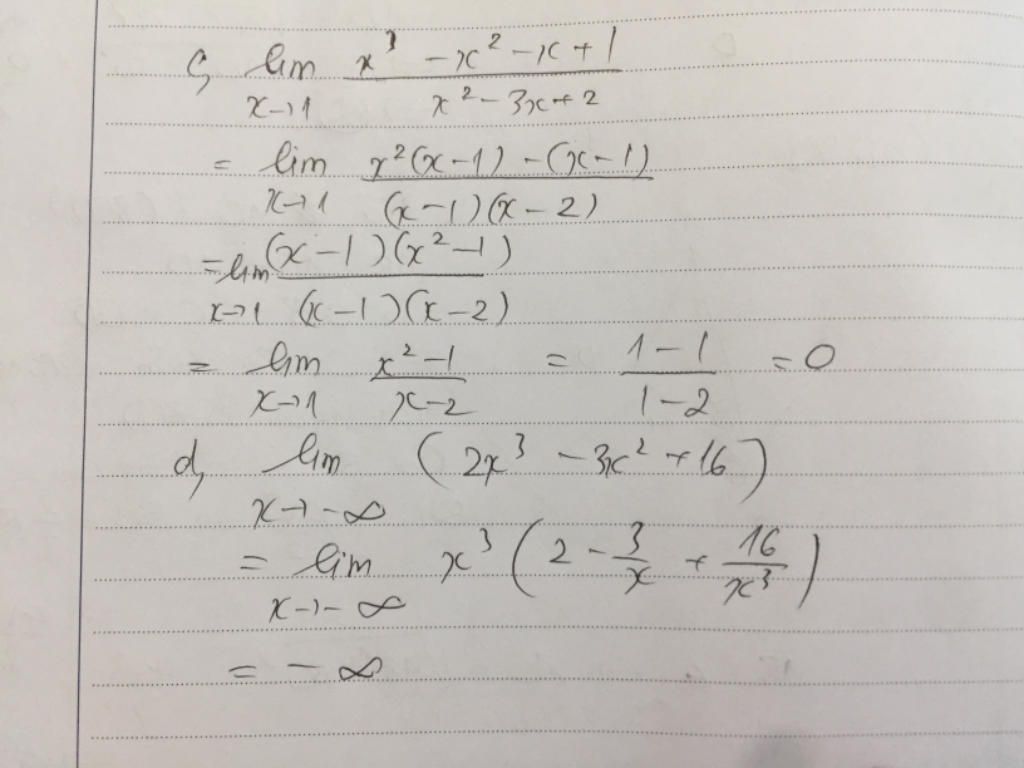 c, lim x→1 (x³ - x² - x + 1)/(x² - 3x + 2)
= lim x→1 (x²(x-1) - (x-1))/((x-1)(x-2))
= lim x→1 ((x-1)(x²-1))/((x-1)(x-2))
= lim x→1 (x²-1)/(x-2) = (1-1)/(1-2) = 0
d, lim x→-∞ (2x³ - 3x² + 16)
= lim x→-∞ x³(2 - 3/x + 16/x³)
= -∞